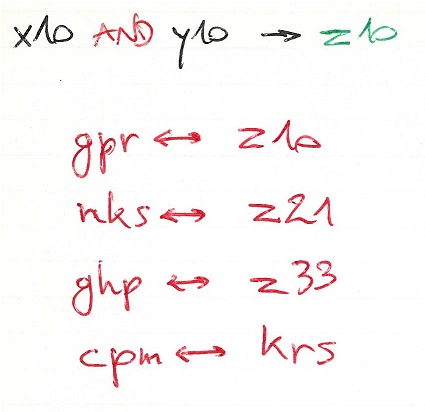 x10 AND y10 → z10
gpr ↔ z10
nks ↔ z21
ghp ↔ z33
cpm ↔ krs